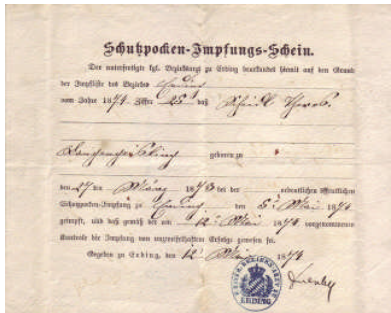 Schutzpocken-Impfungs-Schein.
Der unterfertigte kgl. Bezirksarzt zu Erding beurkundet hiermit auf den Grund
der Impfliste des Bezirks Erding
vom Jahre 1874 Ziffer 25 daß
geboren zu
den 27ten März 1873 bei der ordentlichen öffentlichen
Schutzpocken-Impfung zu Erding den 5. Mai 1874
geimpft, und daß gemäß der am 12. Mai 1874 vorgenommenen
Kontrole die Impfung von unzweifelhaftem Erfolge gewesen sei.
Gegeben zu Erding, den 12. Mai 1874
ERDING